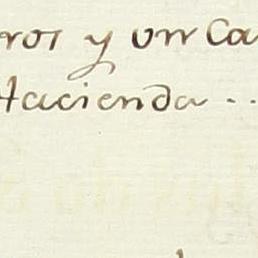 ros y un Ca
Hacienda . .